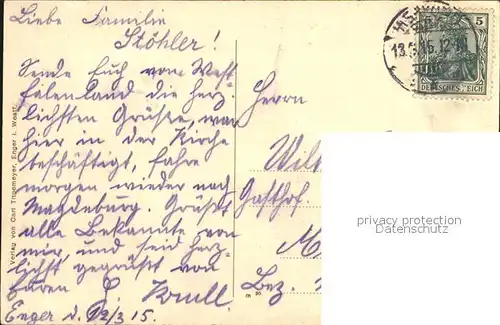 Liebe Familie
Stöhler!
Sende Euch vom West
falenland die herz
lichsten Grüße, war
hier in der Kirche
beschäftigt, fahre
morgen wieder nach
Magdeburg. Grüßt
alle Bekannte von
mir, und seid herz
lichst gegrüßt von
Euren
Enger d. 12/3 15.
Verlag von Carl Trippmeyer, Enger i. Westf.
5
DEUTSCHES REICH
Herrn
Gasthof
Bez.
privacy protection
Datenschutz